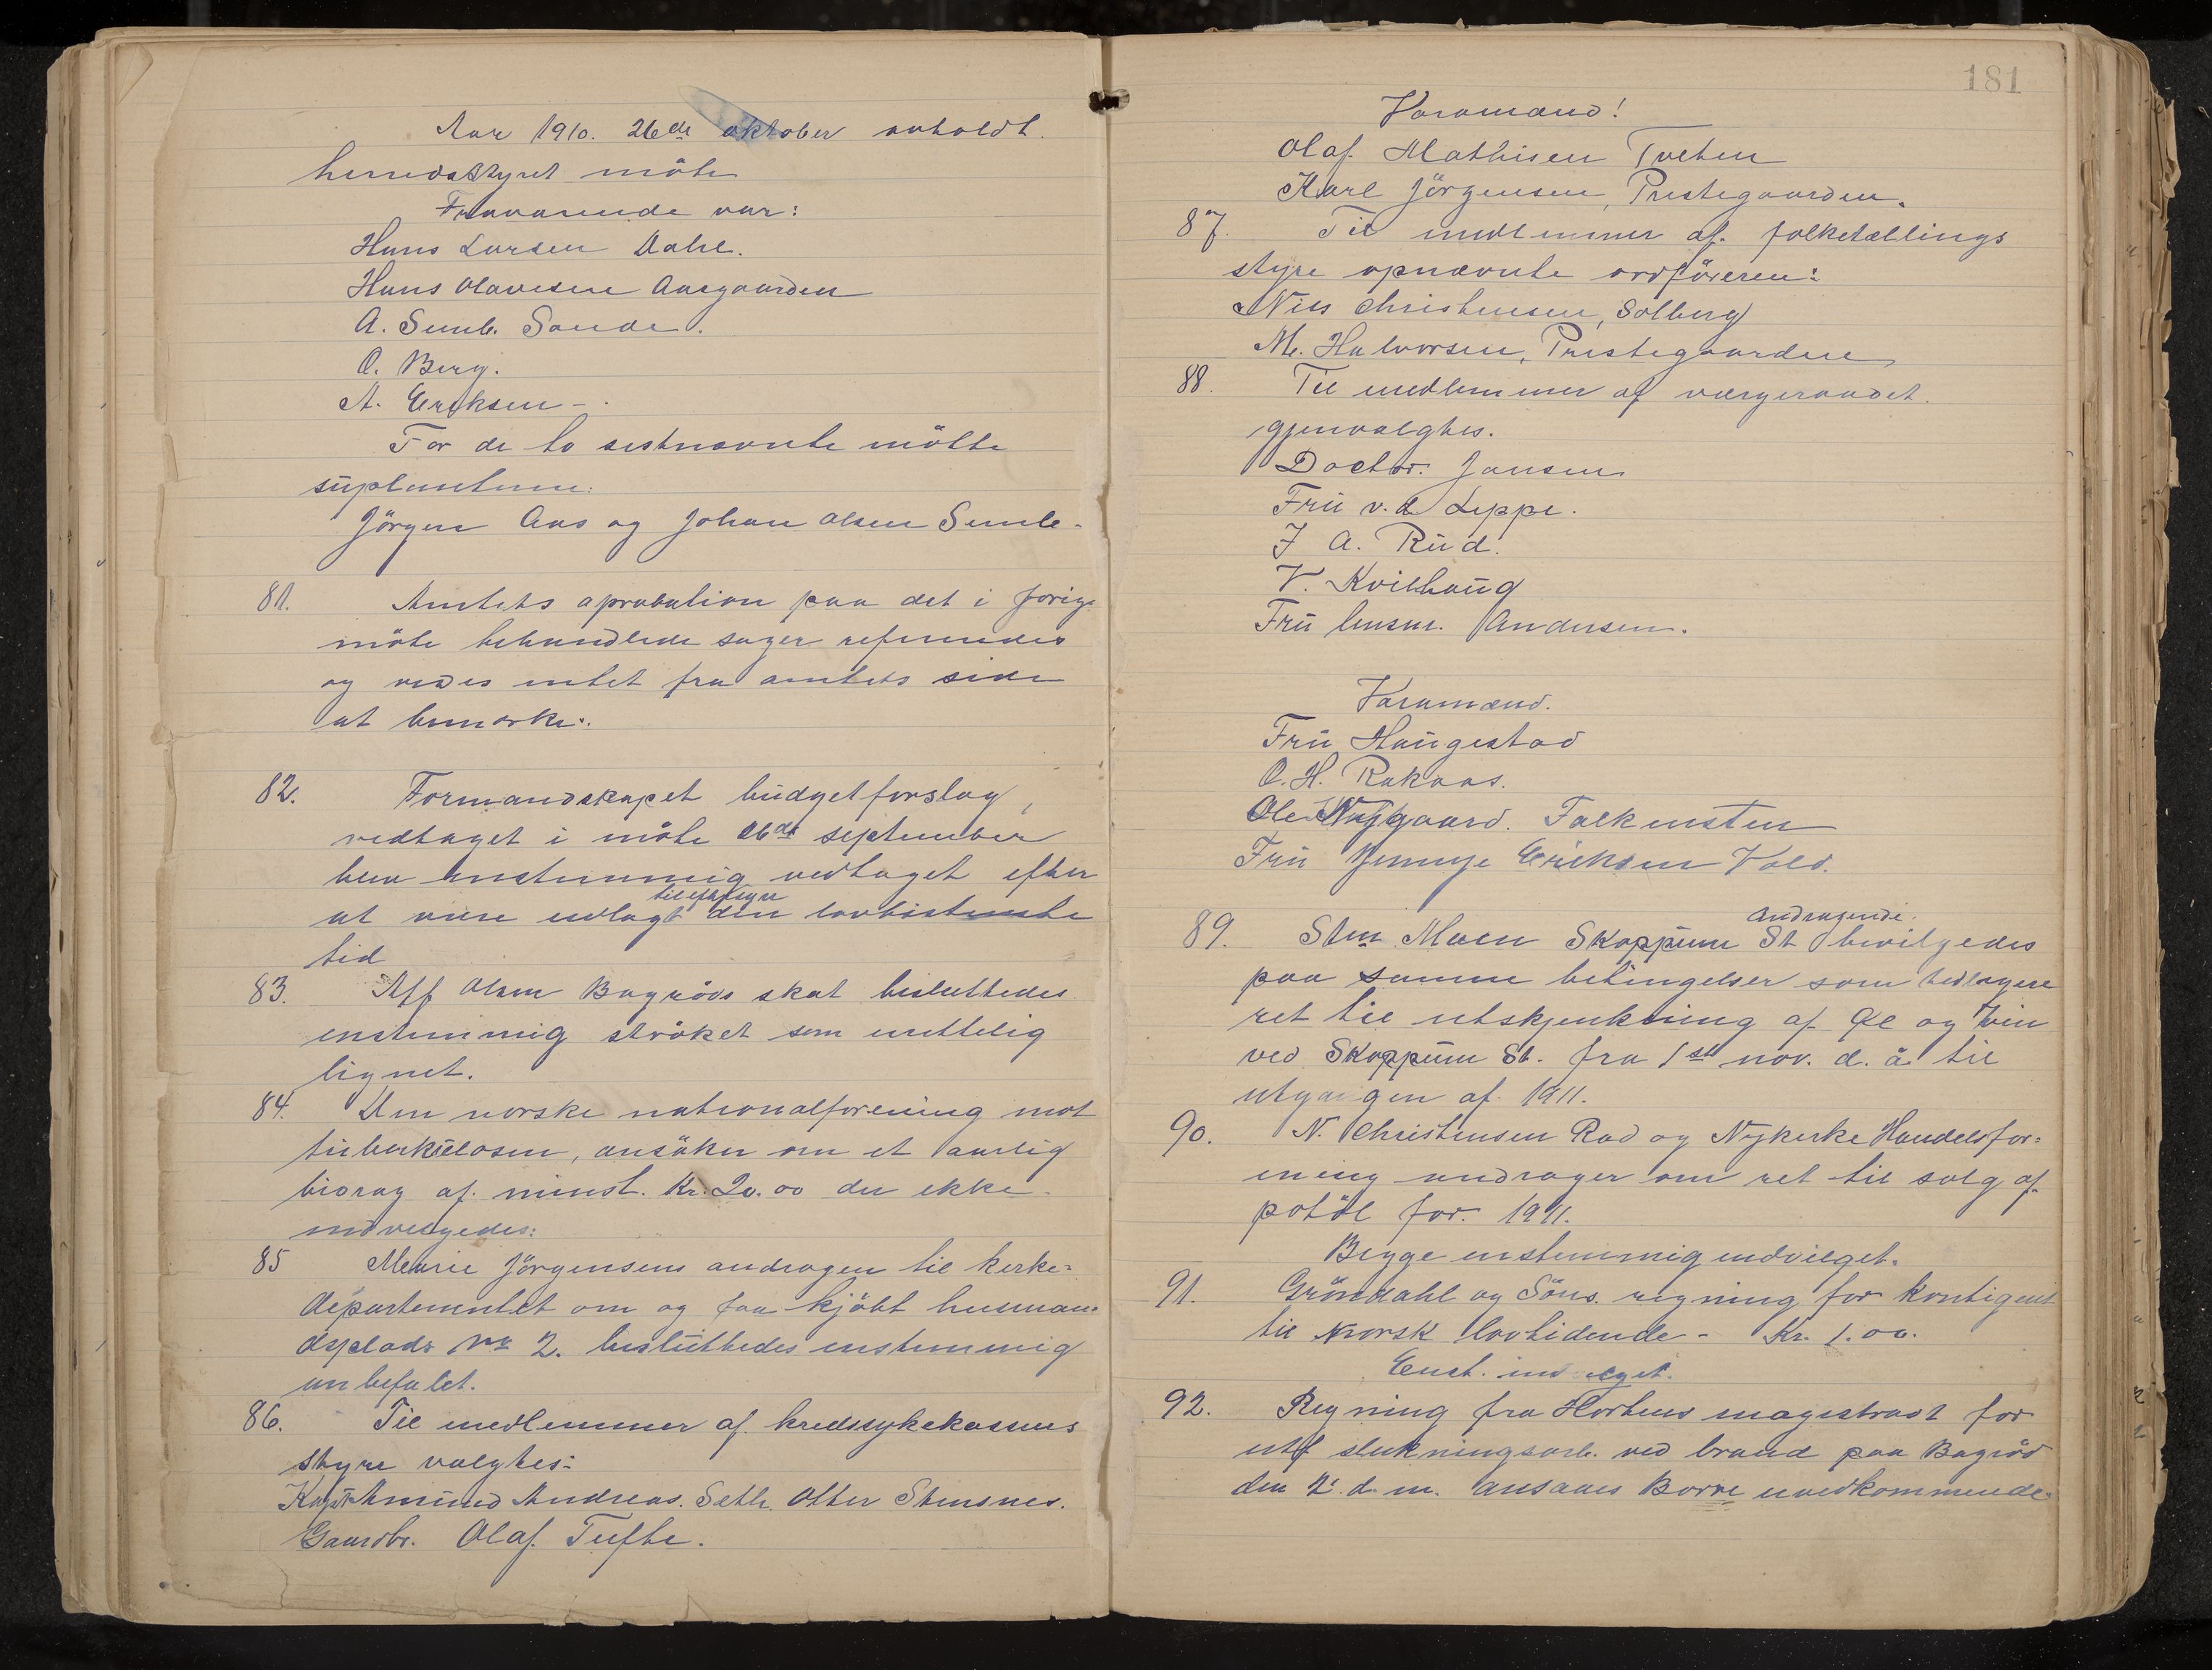 Aar 1910. 26de oktober avholdt
herredsstyret möte
Fraværende var:
Hans Larsen Dahl.
Hans Olavesen Aasgaarden
A. Semb. Sande.
O. Berg.
A. Eriksen -
For de to sestnævnte mötte
süplanterne:
Jörgen Aas og Johan Olsen Semb.
81. Amtets aprobation paa det i forige
möte behandlede sager refereredes
og vides intet fra amtets side
at bemærke.
82. Formandskapet büdgetforslag,
vedtaget i möte 26de september
blev enstemmig vedtaget efter
tileftersyn
at være udlagt den lovbestemte
tid
83. Alf Olsen Bagröds skat besluttedes
enstemmig ströket som urettelig
lignet.
84. Den norske nationalforening mot
tüberkülosen, ansöker om et aarlig
bidrag af minst. Kr. 20.00 der ikke
indvilgedes:
85 Marie Jörgensens andragen til kirke-
departementet om og faa kjöbt husman-
dsplads No 2. beslüttedes enstemmig
anbefalet.
86. Til medlemmer af kredssykekassens
styre valgtes:
Kapt Amund Andreas. Seth. Otter Stensnes.
Gaardbr. Olaf. Tufte.
181
Varamænd!
Olaf Mathisen Tveten
Karl Jörgensen, Prestegaarden.
87. Til medlemmer af folketællings
styre opnævnte ordföreren:
Nils Christensen, Solberg
M. Halvorsen, Prestegaarden
88. Til medlemmer af værgeraadet.
gjenvalgtes.
Doctor. Jansen
Frü v. d. Lippe.
J A. Rüd.
V. Kvilhaüg
Frü lensm. Andersen.
Varamænd.
Frü Haügestad
O. H. Rakaas.
Ole Nygaard. Falkensten
Frü Jennye Eriksen Vold.
andragende.
89. Sten Moen Skoppum St bevilgedes
paa samme betingelser som tidligere
ret til utskjenkning af Øl og Vin
ved Skoppüm St. fra 1st nov. d. å til
utgangen af 1911.
90. N. Christensen Rød og Nykirke Handelsfor-
ening andrager om ret til salg af
potöl for 1911.
Begge enstemmig indvilget.
91. Gröndahl og Söns. regning for kontigent
til Norsk lovtidende - Kr. 1.00.
Enst. indvilget.
92. Regning fra Hortens magistrat for
utf slukningsarb. ved brand paa Bagröd
den 2. d. m. ansaaes Borre uvedkommende.